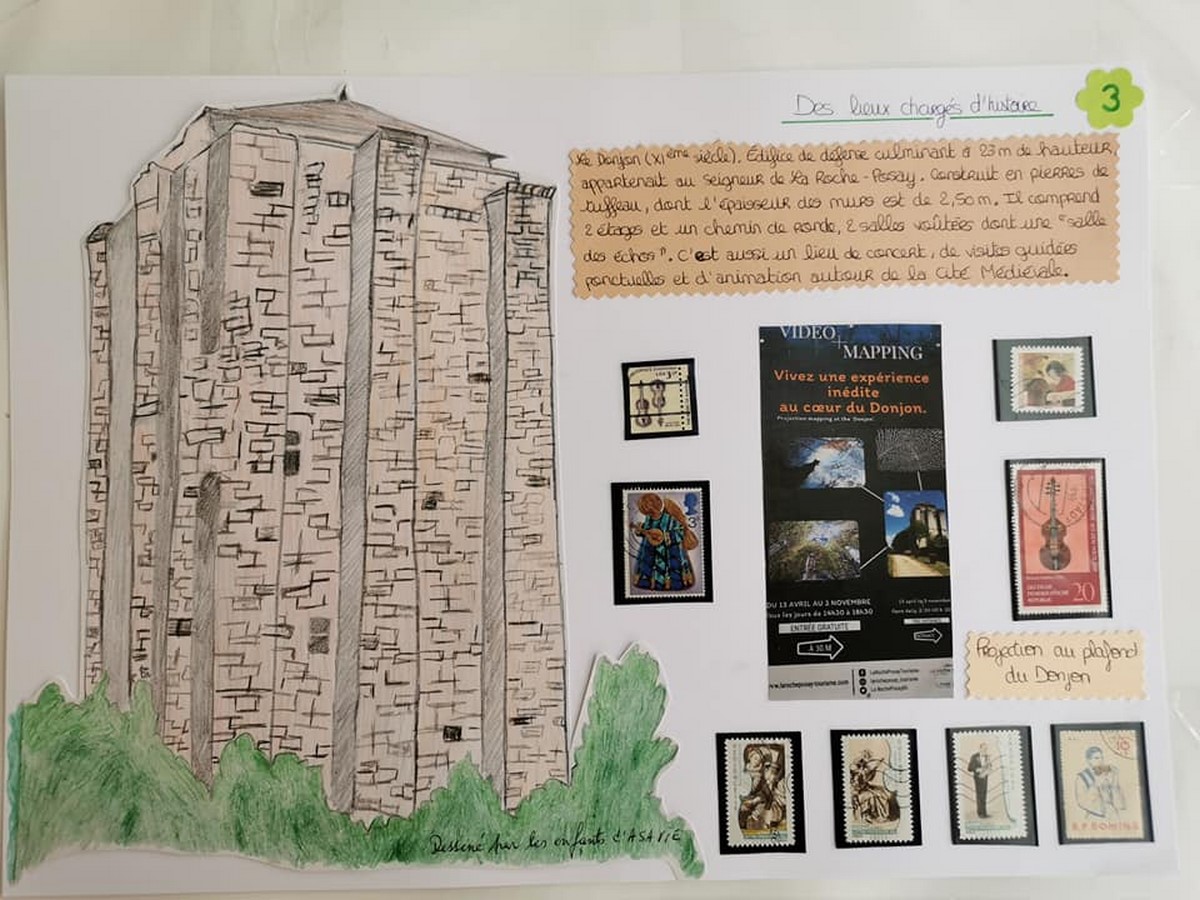 Des lieux chargés d'histoire
3
Le Donjon (XIème siècle). Édifice de défense culminant à 23 m de hauteur
appartenait au seigneur de La Roche-Posay. Construit en pierres de
tuffeau, dont l'épaisseur des murs est de 2,50 m. Il comprend
2 étages et un chemin de ronde, 2 salles voûtées dont une "salle
des échos". C'est aussi un lieu de concert, de visites guidées
ponctuelles et d'animation autour de la Cité Médiévale.
VIDEO
+
MAPPING
Vivez une expérience
inédite
au cœur du Donjon.
Projection mapping at the Donjon
DU 13 AVRIL AU 3 NOVEMBRE
Tous les jours de 14h30 à 18h30
ENTRÉE GRATUITE
À 30 M
www.larocheposay-tourisme.com
LaRochePosayTourisme
larocheposay_tourisme
La RochePosay
DEUTSCHE
DEMOKRATISCHE
REPUBLIK
20
Projection au plafond
du Donjon
R.P.ROMINA
Dessiné par les enfants d'ASAVIE